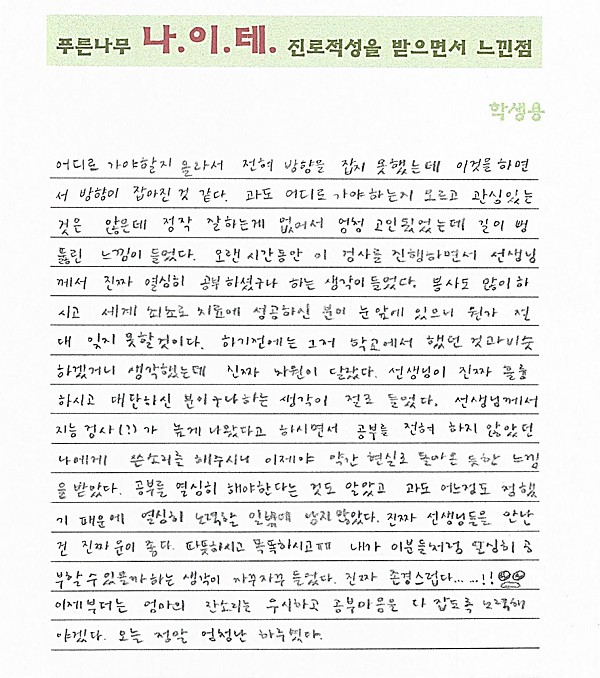 푸른나무 나.이.테. 진로적성을 받으면서 느낀점
학생용
어디로 가야할지 몰라서 전혀 방향을 잡지 못했는데 이것을 하면
서 방향이 잡아진 것 같다. 과도 어디로 가야하는지 모르고 관심있는
것은 많은데 정작 잘하는게 없어서 엄청 고민됬었는데 길이 뻥
뚫린 느낌이 들었다. 오랜 시간동안 이 검사를 진행하면서 선생님
께서 진짜 열심히 공부하셨구나 하는 생각이 들었다. 봉사도 많이 하
시고 세계 최초로 치료에 성공하신 분이 눈 앞에 있으니 뭔가 절
대 잊지 못할것이다. 하기전에는 그저 학교에서 했던 것과 비슷
하겠거니 생각했는데 진짜 차원이 달랐다. 선생님이 진짜 훌륭
하시고 대단하신 분이구나하는 생각이 절로 들었다. 선생님께서
지능 검사(?)가 높게 나왔다고 하시면서 공부를 전혀 하지 않았던
나에게 쓴소리를 해주시니 이제야 약간 현실로 돌아온 듯한 느낌
을 받았다. 공부를 열심히 해야한다는 것도 알았고 과도 어느정도 정했
기 때문에 열심히 노력할 일밖에 남지 않았다. 진짜 선생님들을 만난
건 진짜 운이 좋다. 따뜻하시고 똑똑하시고ㅠㅠ 내가 이분들처럼 열심히 공
부할 수 있을까하는 생각이 자꾸자꾸 들었다. 진짜 존경스럽다... ...!!
이제부터는 엄마의 잔소리는 무시하고 공부마음을 다 잡도록 노력해
야겠다. 오늘 정말 엄청난 하루였다.